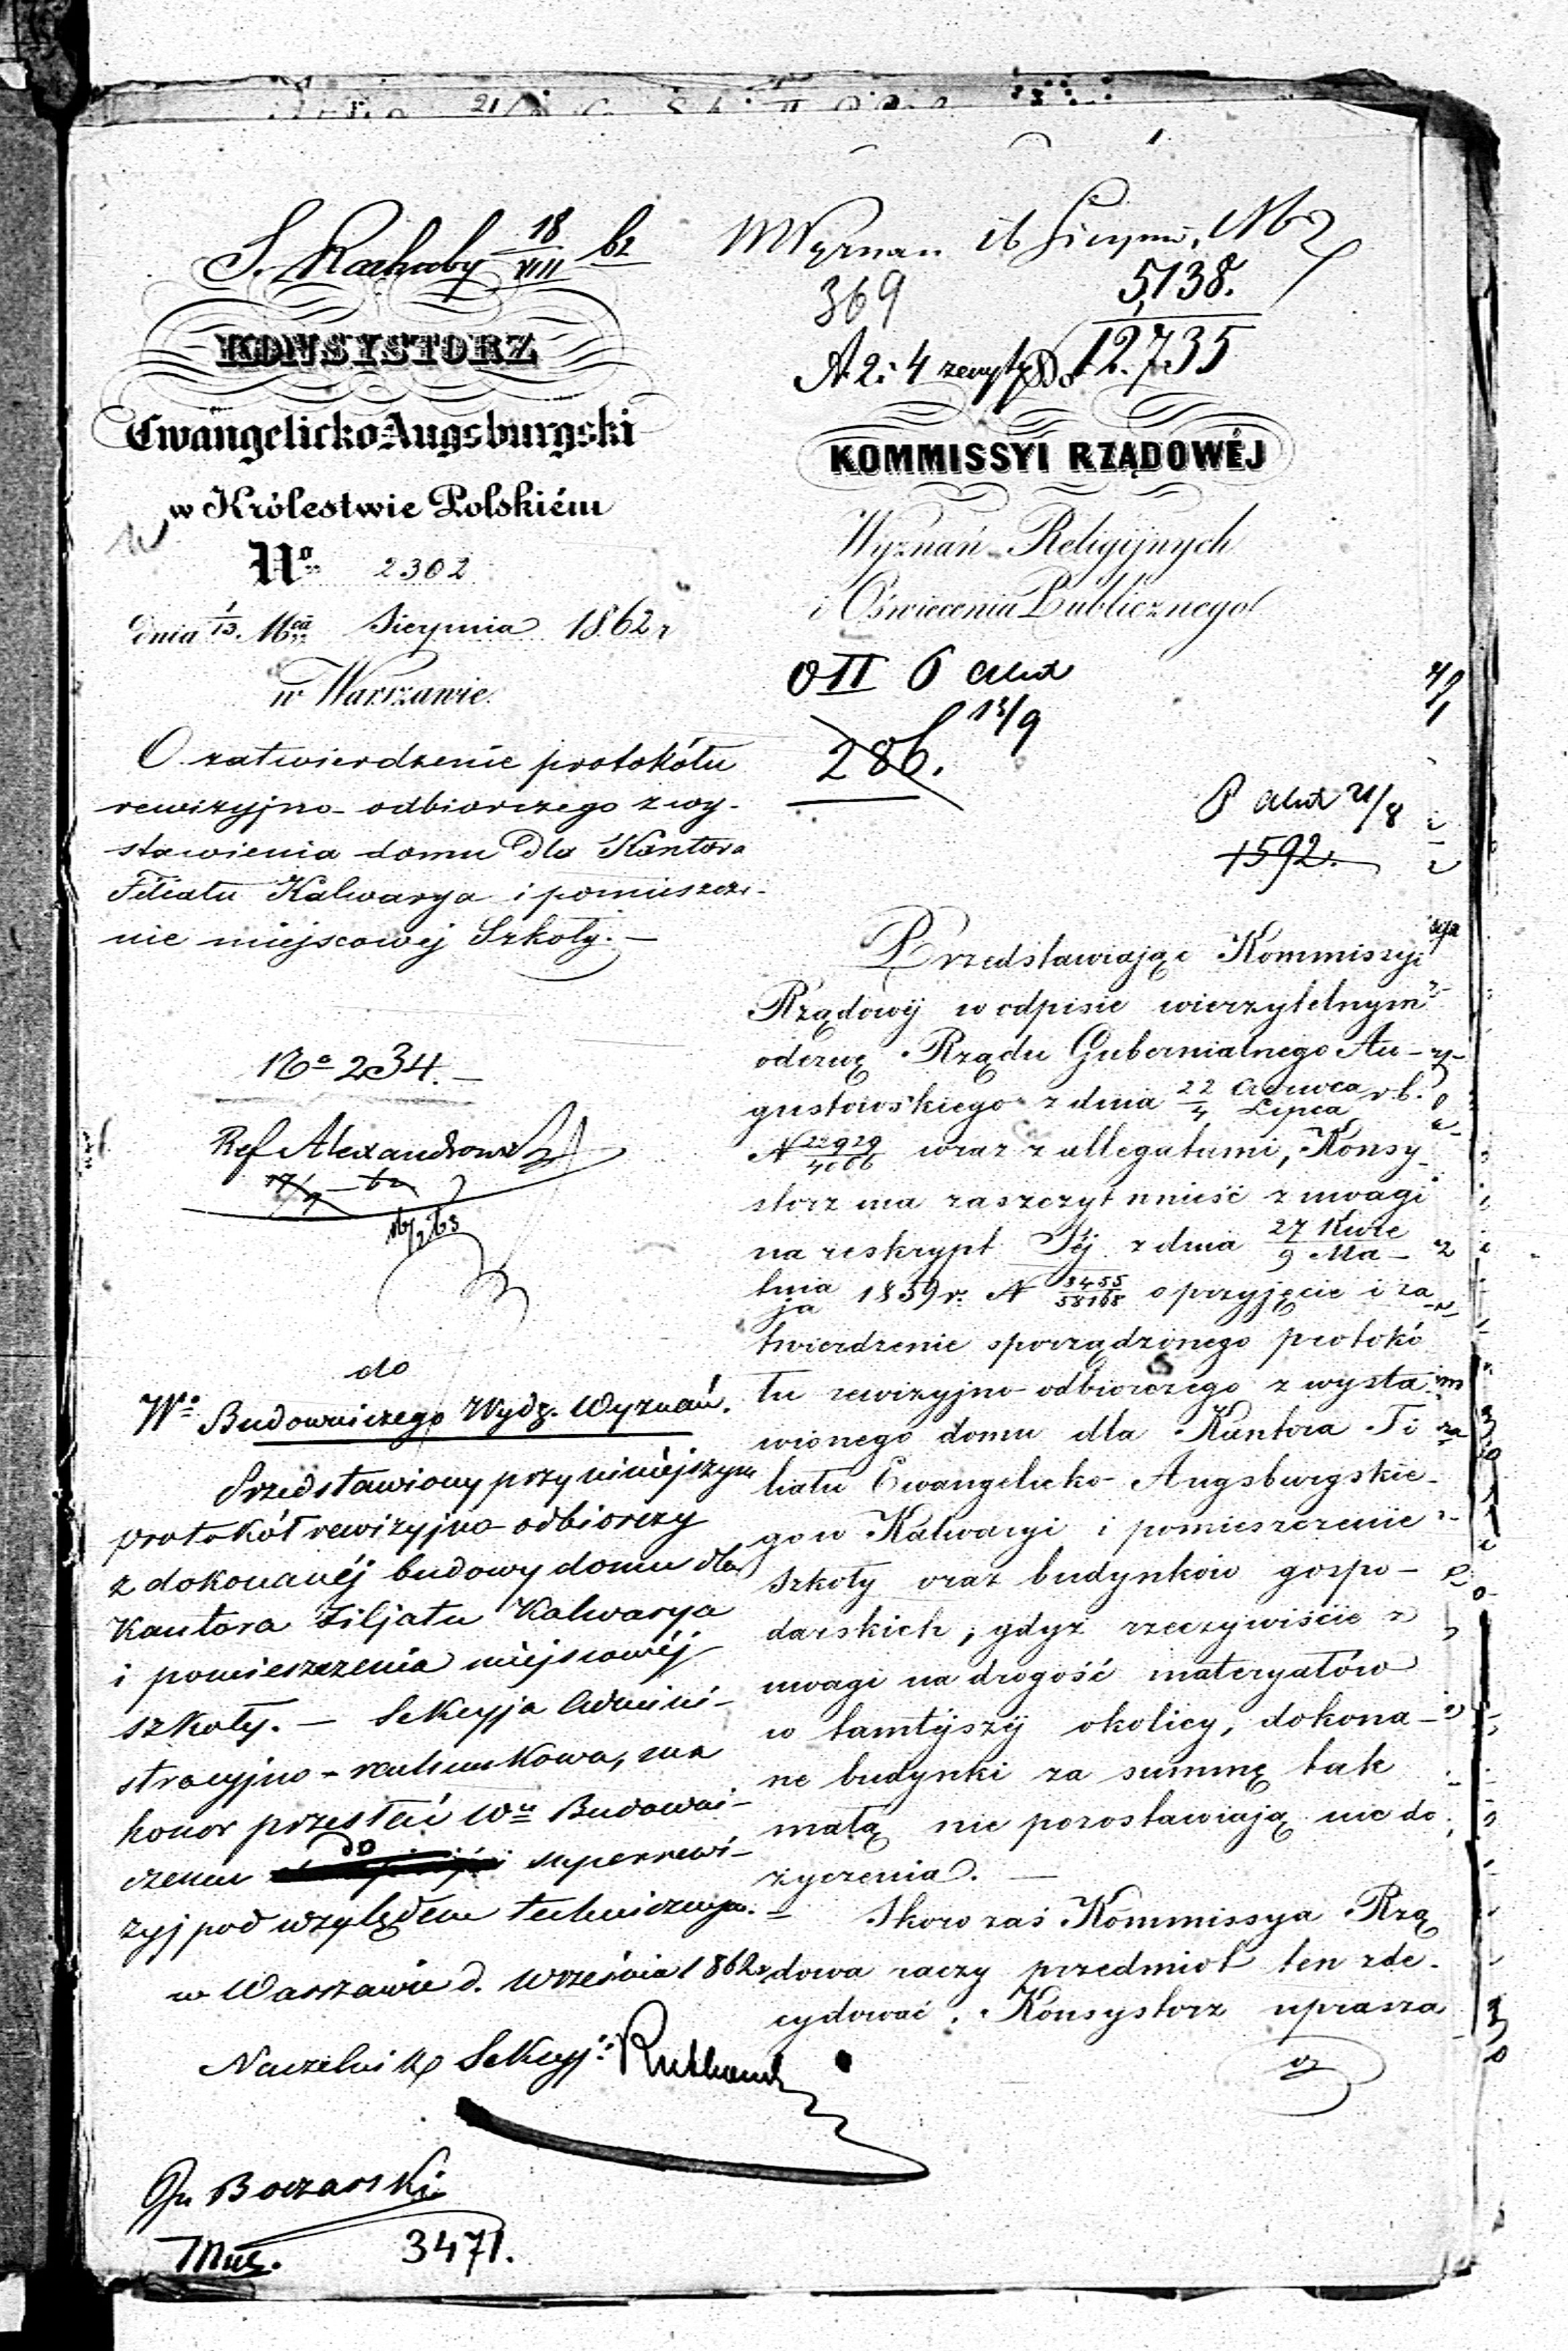 S. Rachuby 18/VIII 62
KONSYSTORZ
Ewangelicko Augsburgski
w Królestwie Polskiém
No. 2302
dnia 1/13. Mca Sierpnia 1862 r
w Warszawie.
O zatwierdzenie protokółu
rewizyjno-odbiorczego z wy-
stawienia domu dla Kantora
Filiału Kalwarya i pomieszcze-
nie miejscowej Szkoły. —
No 234. —
Ref Alexandrow
16/2 63
do
Wo Budowniczego Wydz. Wyznań.
Przedstawiony przy niniéjszym
protokół rewizyjno-odbiorczy
z dokonanéj budowy domu dla
Kantora Filjału Kalwarya
i pomieszczenia miejscowéj
szkoły. — Sekcyja Admini-
stracyjno-rachunkowa, ma
honor przesłać Wu Budowni-
czemu do superrewi-
zyj pod względem technicznym.
w Warszawie d. Września 1862 r.
Naczelnik Sekcyj:
Boczarski
3471.
369
5,138.
12.735
A 2: 4 zeszyty
KOMMISSYI RZĄDOWÉJ
Wyznań Religijnych
i Oświecenia Publicznego
O II 6
13/9
286.
P 21/8
1592.
Przedstawiając Kommissyi
Rządowéj w odpisie wierzytelnym
odezwę Rządu Gubernialnego Au-
gustowskiego z dnia 22 Czerwca/4 Lipca r. b.
N 22929/4006 wraz z allegatami, Konsy-
storz ma zaszczyt wnieść z uwagi
na reskrypt Jéj z dnia 27 Kwie/9 Ma-
tnia/ja 1859 r. N 3455/58168 o przyjęcie i za-
twierdzenie sporządzonego protokó
łu rewizyjno-odbiorczego z wysta
wionego domu dla Kantora Fi
liału Ewangelicko-Augsburgskie-
go w Kalwaryi i pomieszczenie
Szkoły oraz budynków gospo-
darskich, gdyż rzeczywiście z
uwagi na drogość materyałów
w tamtéjszéj okolicy, dokona-
ne budynki za summę tak
małą nie pozostawiają nic do
życzenia. —
Skoro zaś Kommissya Rzą
dowa raczy przedmiot ten zde-
cydować, Konsystorz uprasza